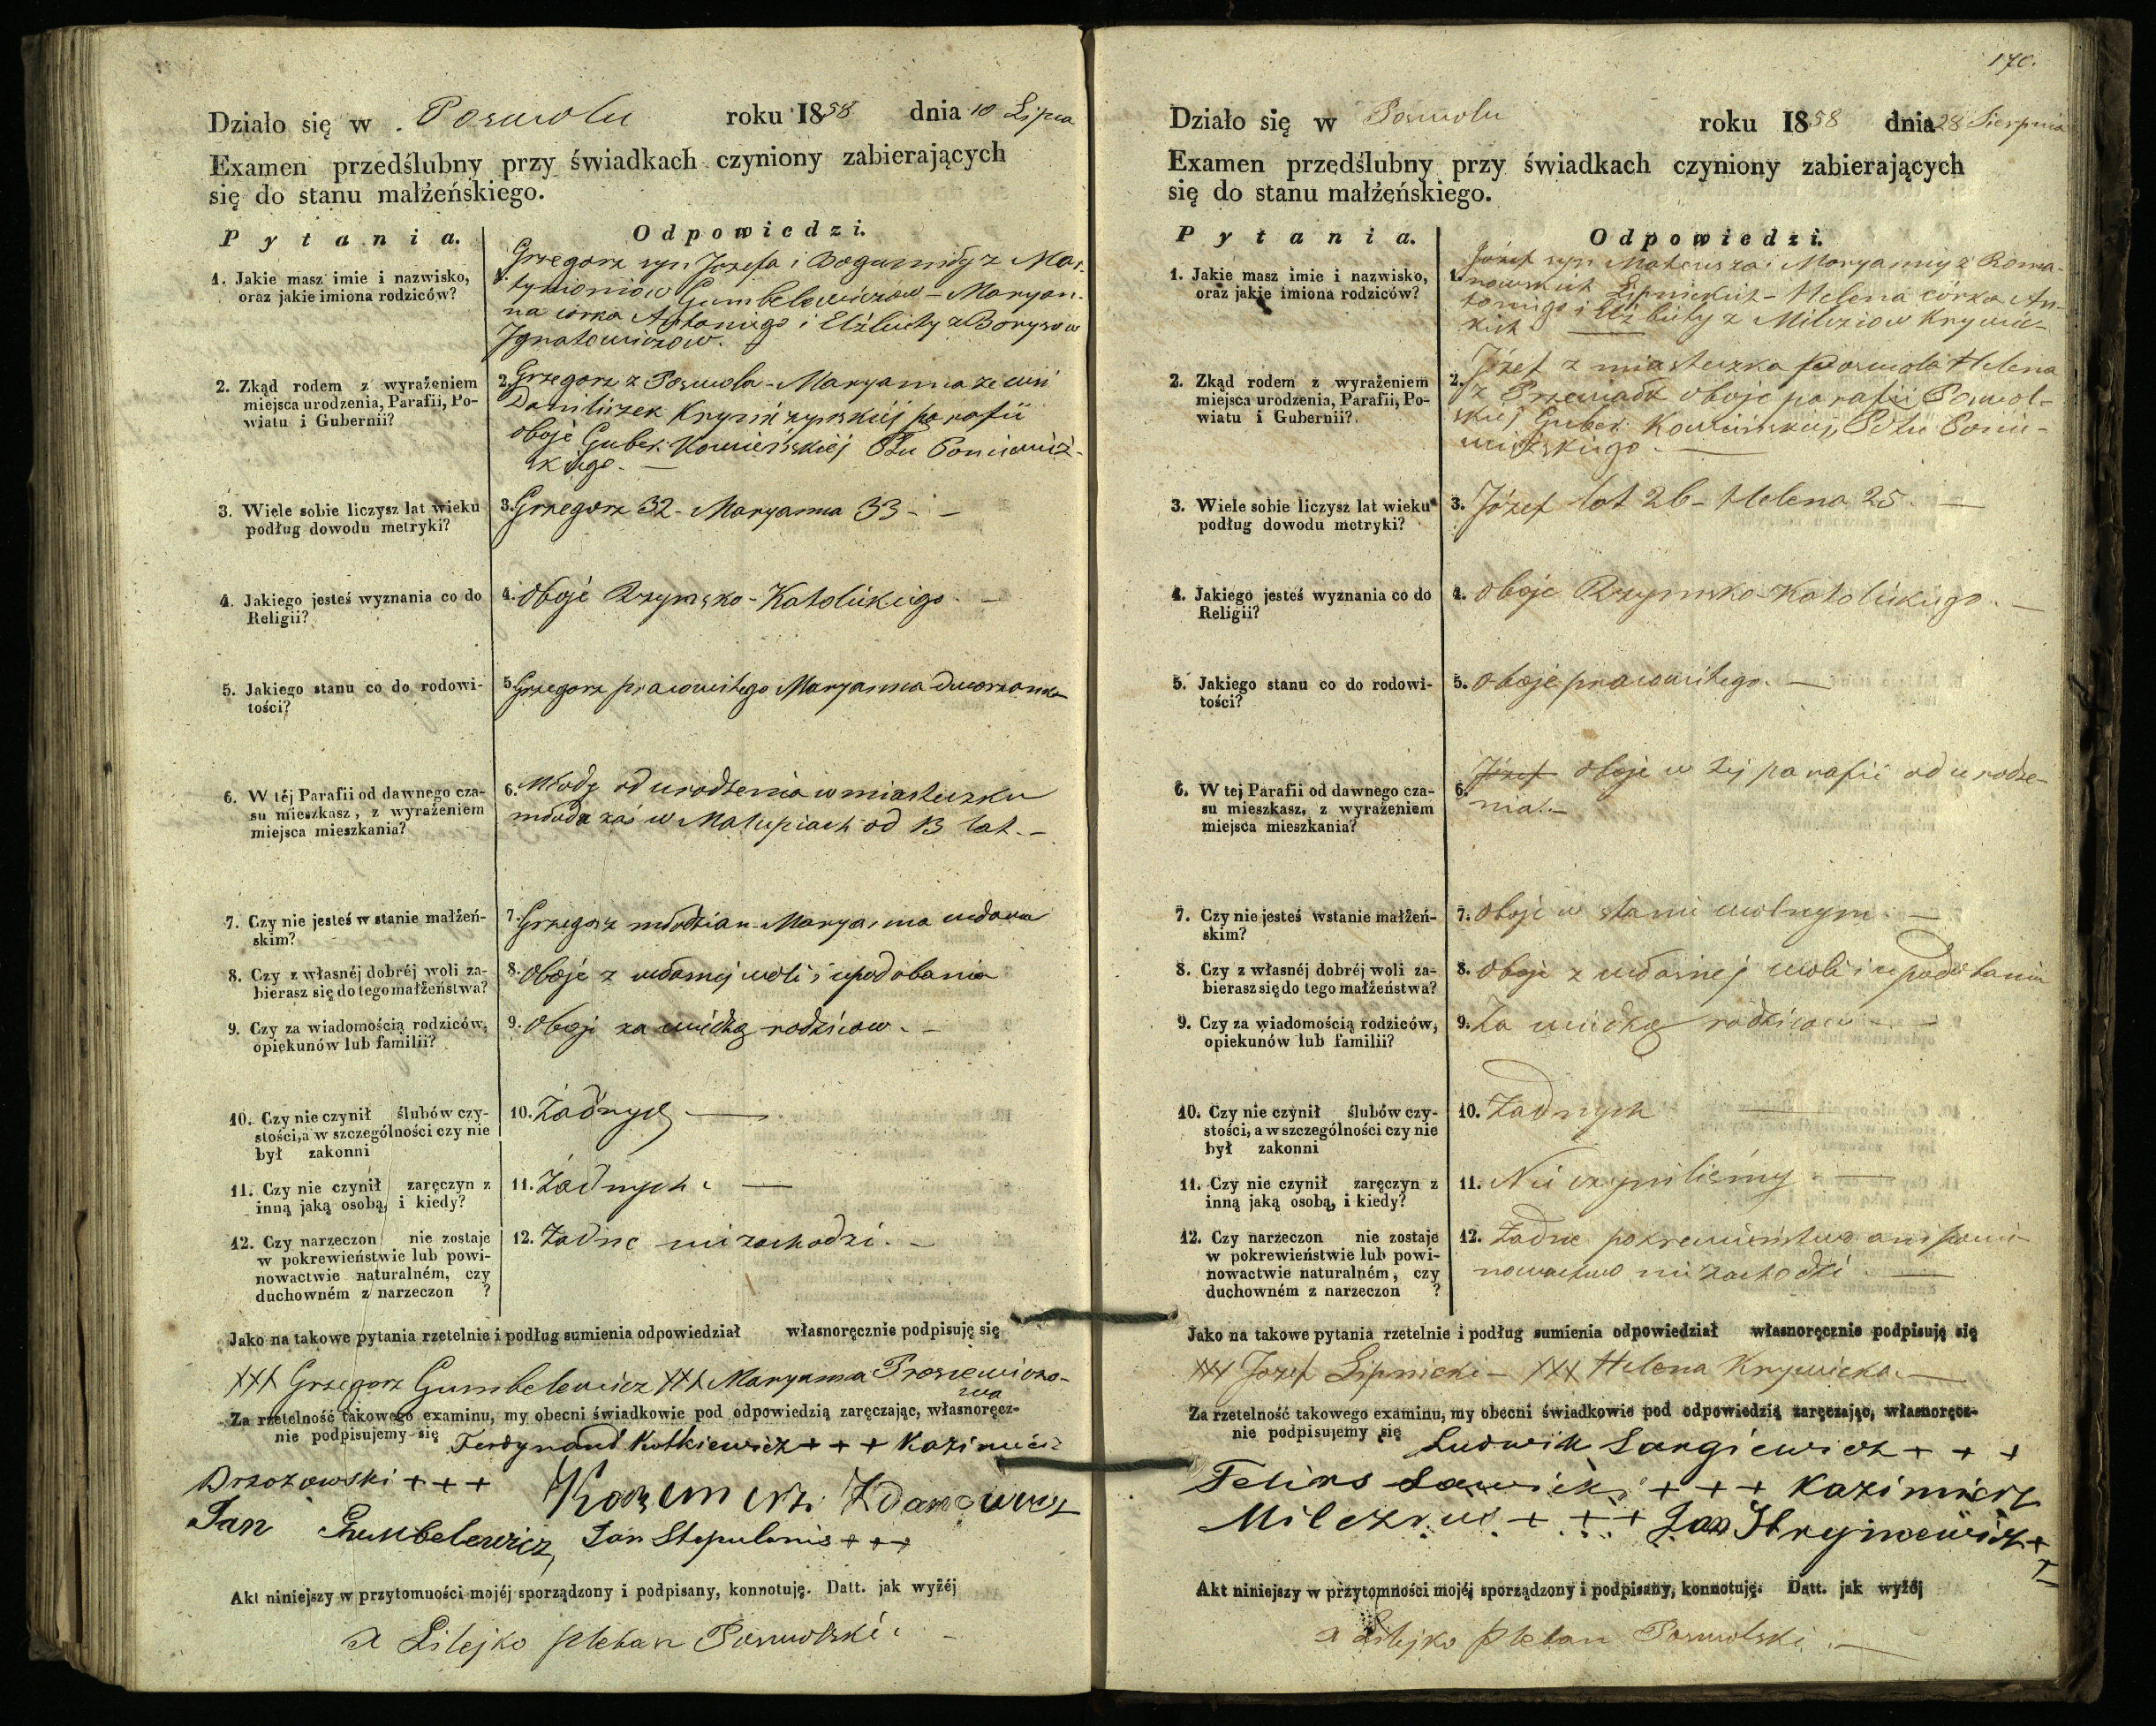 Działo się w Poswolu roku 1858 dnia 10 Lipca
Examen przedślubny przy świadkach czyniony zabierających
się do stanu małżeńskiego.
Pytania. Odpowiedzi.
1. Jakie masz imie i nazwisko,
oraz jakie imiona rodziców?
Grzegorz syn Józefa i Bogumiły z Mar-
tynoniów Gumbelewiczów – Maryan-
na córka Antoniego i Elżbiety z Borysów
Ignatowiczow.
2. Zkąd rodem z wyrażeniem
miejsca urodzenia, Parafii, Po-
wiatu i Gubernii?
2. Grzegorz z Poswola – Maryanna ze wsi
Daniliszek parafii
oboje Guber. Kowieńskiéj Ptu Poniewież-
skiego. —
3. Wiele sobie liczysz lat wieku
podług dowodu metryki?
3. Grzegorz 32 – Maryanna 33 – –
4. Jakiego jesteś wyznania co do
Religii?
4. oboje Rzymsko-Katolickiego. —
5. Jakiego stanu co do rodowi-
tości?
5. Grzegorz pracowitego Maryanna dworzanka
6. W téj Parafii od dawnego cza-
su mieszkasz, z wyrażeniem
miejsca mieszkania?
6. Młody od urodzenia w miasteczku
młoda zaś w Matupiach od 13 lat. –
7. Czy nie jesteś w stanie małżeń-
skim?
7. Grzegorz młodzian – Maryanna wdowa
8. Czy z własnéj dobréj woli za-
bierasz się do tego małżeństwa?
8. Oboje z własnej woli i upodobania
9. Czy za wiadomością rodziców,
opiekunów lub familii?
9. Oboje za wiedzą rodziców. –
10. Czy nie czynił ślubów czy-
stości, a w szczególności czy nie
był zakonni
10. Żadnych —
11. Czy nie czynił zaręczyn z
inną jaką osobą, i kiedy?
11. Żadnych. —
12. Czy narzeczon nie zostaje
w pokrewieństwie lub powi-
nowactwie naturalném, czy
duchowném z narzeczon ?
12. Żadne nie zachodzi. –
Jako na takowe pytania rzetelnie i podług sumienia odpowiedział własnoręcznie podpisuję się
XXX Grzegorz Gumbelewicz XXX Maryanna
Za rzetelność takowego examinu, my obecni świadkowie pod odpowiedzią zaręczając, własnoręcz-
nie podpisujemy się Ferdynand Kutkiewicz + + + Kazimierz
Brzozowski + + +
Jan Gumbelewicz, Jan Stapulonis + + +
Akt niniejszy w przytomności mojéj sporządzony i podpisany, konnotuję. Datt. jak wyżéj
X Lilejko pleban Poswolski. –
170.
Działo się w Poswolu roku 1858 dnia 28 Sierpnia
Examen przedślubny przy świadkach czyniony zabierających
się do stanu małżeńskiego.
Pytania. Odpowiedzi.
1. Jakie masz imie i nazwisko,
oraz jakie imiona rodziców?
1. Józef syn Mateusza i Maryanny z Roma-
nowskich Lipnickich – Helena córka An-
toniego i Elżbiety z Mileziow Krywic-
kich
2. Zkąd rodem z wyrażeniem
miejsca urodzenia, Parafii, Po-
wiatu i Gubernii?
2. Józef z miasteczka Poswola Helena
z oboje parafii Poswol-
skiej Guber. Kowieńskiej, Ptu Ponie-
wieżskiego. —
3. Wiele sobie liczysz lat wieku
podług dowodu metryki?
3. Józef lat 26 – Helena 25. —
4. Jakiego jesteś wyznania co do
Religii?
4. oboje Rzymsko-Katolickiego. —
5. Jakiego stanu co do rodowi-
tości?
5. oboje pracowitego. —
6. W tej Parafii od dawnego cza-
su mieszkasz, z wyrażeniem
miejsca mieszkania?
6. Józef oboje w tej parafii od urodze-
nia. –
7. Czy nie jesteś wstanie małżeń-
skim?
7. oboje w stanie wolnym. —
8. Czy z własnéj dobréj woli za-
bierasz się do tego małżeństwa?
8. oboje z własnej woli i upodobania
9. Czy za wiadomością rodziców,
opiekunów lub familii?
9. Za wiedzą rodziców —
10. Czy nie czynił ślubów czy-
stości, a w szczególności czy nie
był zakonni
10. Żadnych —
11. Czy nie czynił zaręczyn z
inną jaką osobą, i kiedy?
11. Nie czyniliśmy —
12. Czy narzeczon nie zostaje
w pokrewieństwie lub powi-
nowactwie naturalném, czy
duchowném z narzeczon ?
12. Żadne pokrewieństwo ani powi-
nowactwo nie zachodzi. —
Jako na takowe pytania rzetelnie i podług sumienia odpowiedział własnoręcznie podpisuję się
XXX Jozef Lipnicki – XXX Helena Krywicka —
Za rzetelność takowego examinu, my obecni świadkowie pod odpowiedzią zaręczając, własnoręcz-
nie podpisujemy się Ludwik Sargiewicz + + +
Felixs Sawicki + + + Kazimierz
+ + + Jan Hryncewicz + + +
Akt niniejszy w przytomności mojéj sporządzony i podpisany, konnotuję. Datt. jak wyżéj
X Lilejko Pleban Poswolski. —